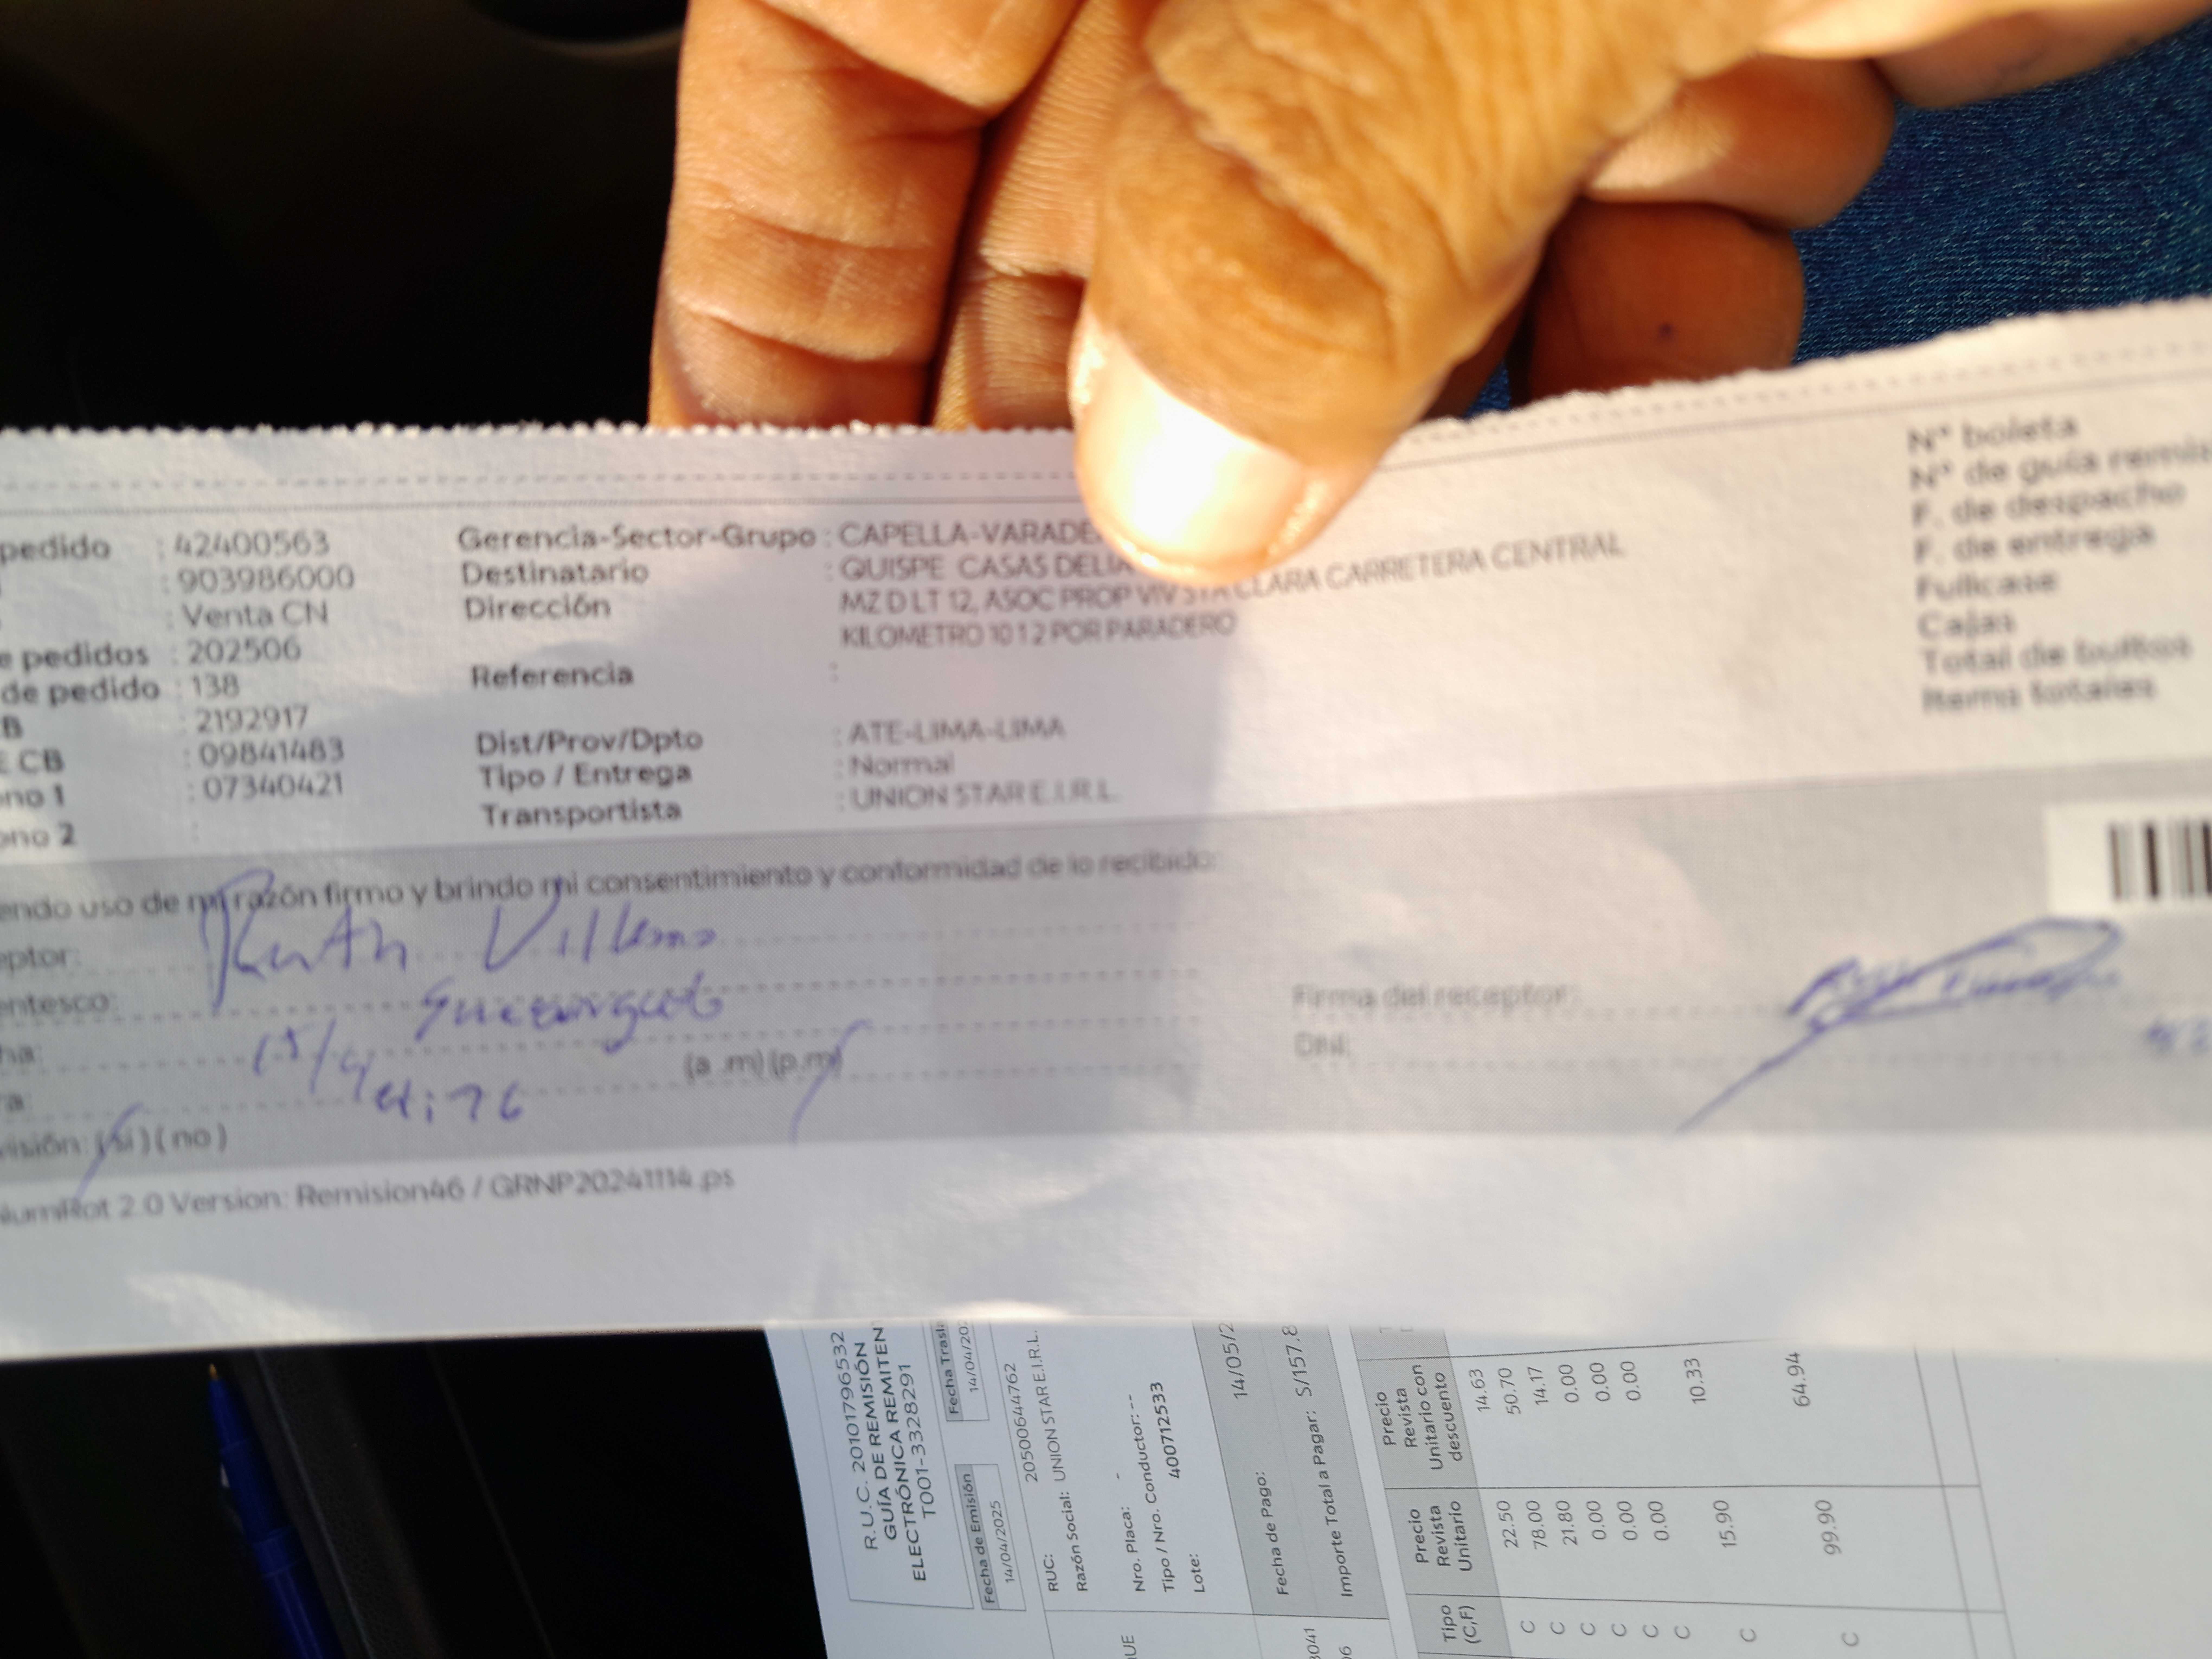 pedido : 42400563
: 903986000
: Venta CN
e pedidos : 202506
de pedido : 138
B : 2192917
E CB : 09841483
ono 1 : 07340421
ono 2 :
Gerencia-Sector-Grupo : CAPELLA-VARADE
Destinatario : QUISPE CASAS DELIA
Dirección : MZ D LT 12, ASOC PROP VIV STA CLARA CARRETERA CENTRAL
KILOMETRO 10 1 2 POR PARADERO
Referencia :
Dist/Prov/Dpto : ATE-LIMA-LIMA
Tipo / Entrega : Normal
Transportista : UNION STAR E.I.R.L.
N° boleta
N° de guía remis
F. de despacho
F. de entrega
Fullcase
Cajas
Total de bultos
Items totales
endo uso de mi razón firmo y brindo mi consentimiento y conformidad de lo recibido:
eptor: Ruth
entesco:
ha: 15/4
ra: (a .m) (p.m)
visión: (si) ( no )
Firma del receptor:
DNI:
NumRot 2.0 Version: Remision46 / GRNP20241114.ps
R.U.C. 20101796532
GUÍA DE REMISIÓN
ELECTRÓNICA REMITEN
T001-3328291
Fecha de Emisión
14/04/2025
Fecha Trasla
14/04/20
RUC: 20500644762
Razón Social: UNION STAR E.I.R.L.
Nro. Placa: -
Tipo / Nro. Conductor: --
Lote: 400712533
Fecha de Pago: 14/05/2
Importe Total a Pagar: S/157.8
UE
3041
06
Tipo (C,F)
Precio Revista Unitario
Precio Revista Unitario con descuento
C 22.50 14.63
C 78.00 50.70
C 21.80 14.17
C 0.00 0.00
C 0.00 0.00
C 0.00 0.00
C 15.90 10.33
C 99.90 64.94